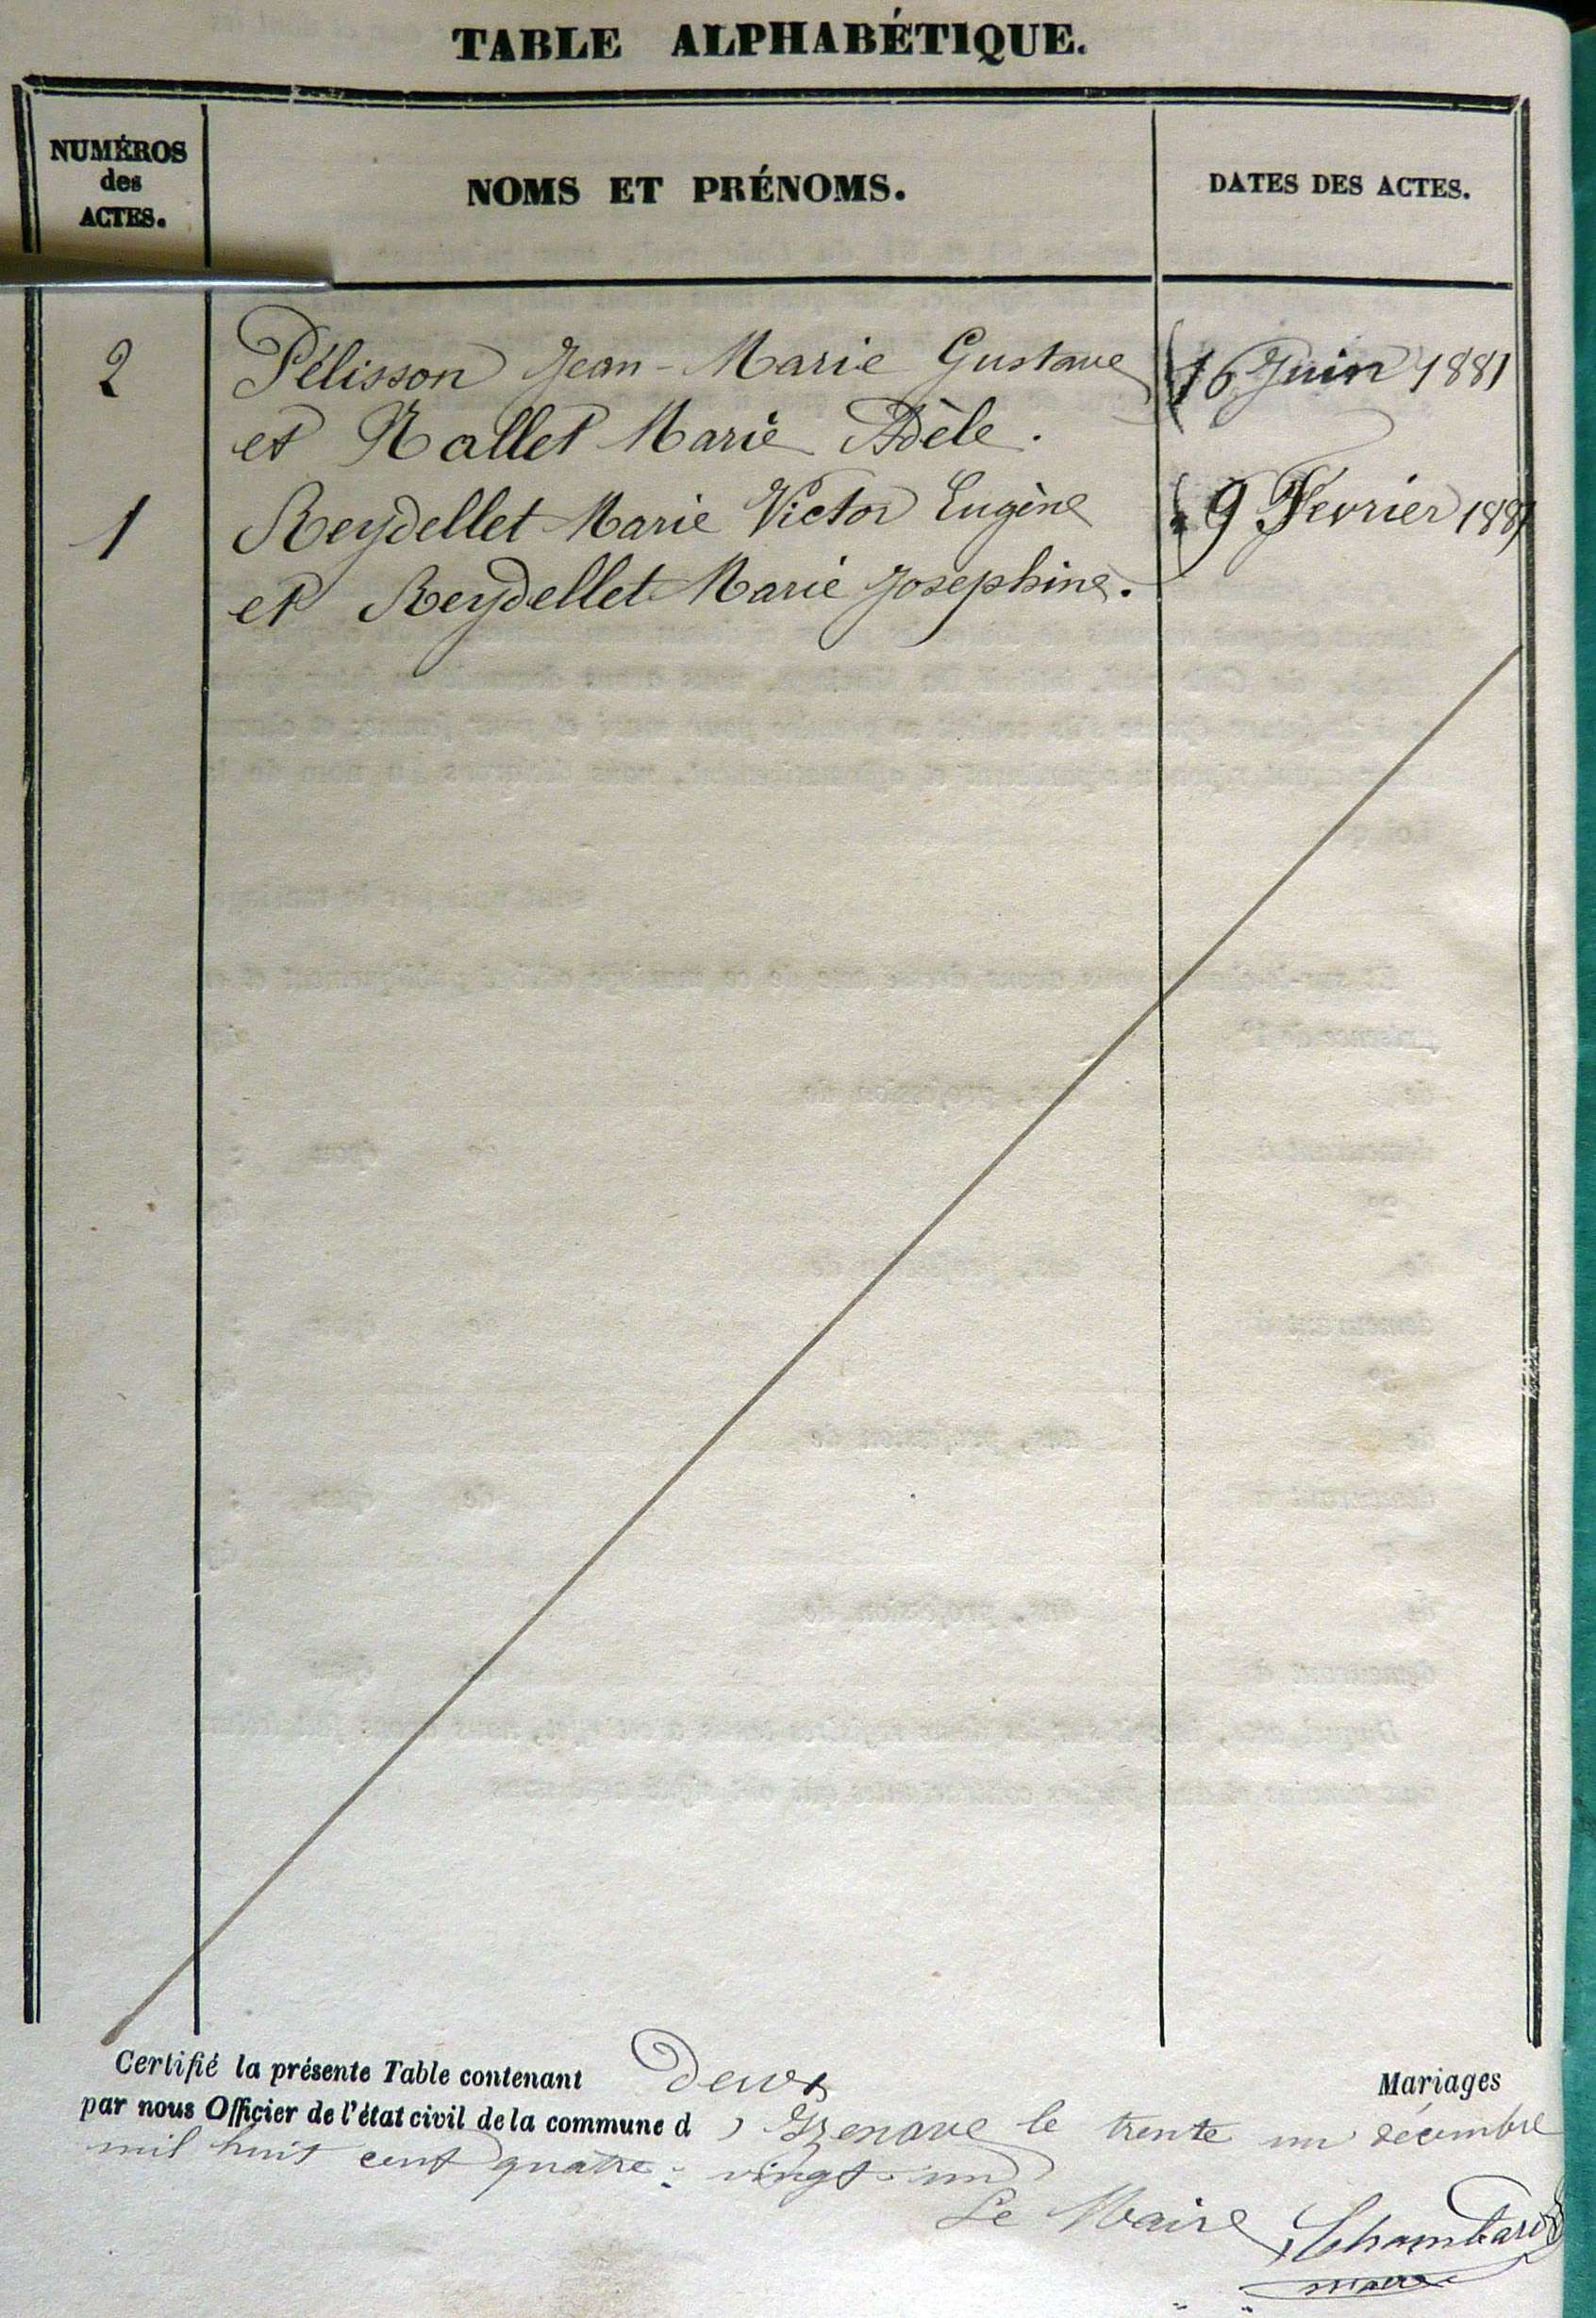 TABLE ALPHABÉTIQUE.
NUMÉROS
des
ACTES.
NOMS ET PRÉNOMS.
DATES DES ACTES.
2 Pélisson Jean-Marie Gustave 16 Juin 1881
et Mallet Marie Adèle.
1 Reydellet Marie Victor Eugène 9 Fevrier 1881
et Reydellet Marie Josephine.
Certifié la présente Table contenant Deux Mariages
par nous Officier de l'état civil de la commune d'Izenave le trente un décembre
mil huit cent quatre-vingt-un
Le Maire Chambard
maire